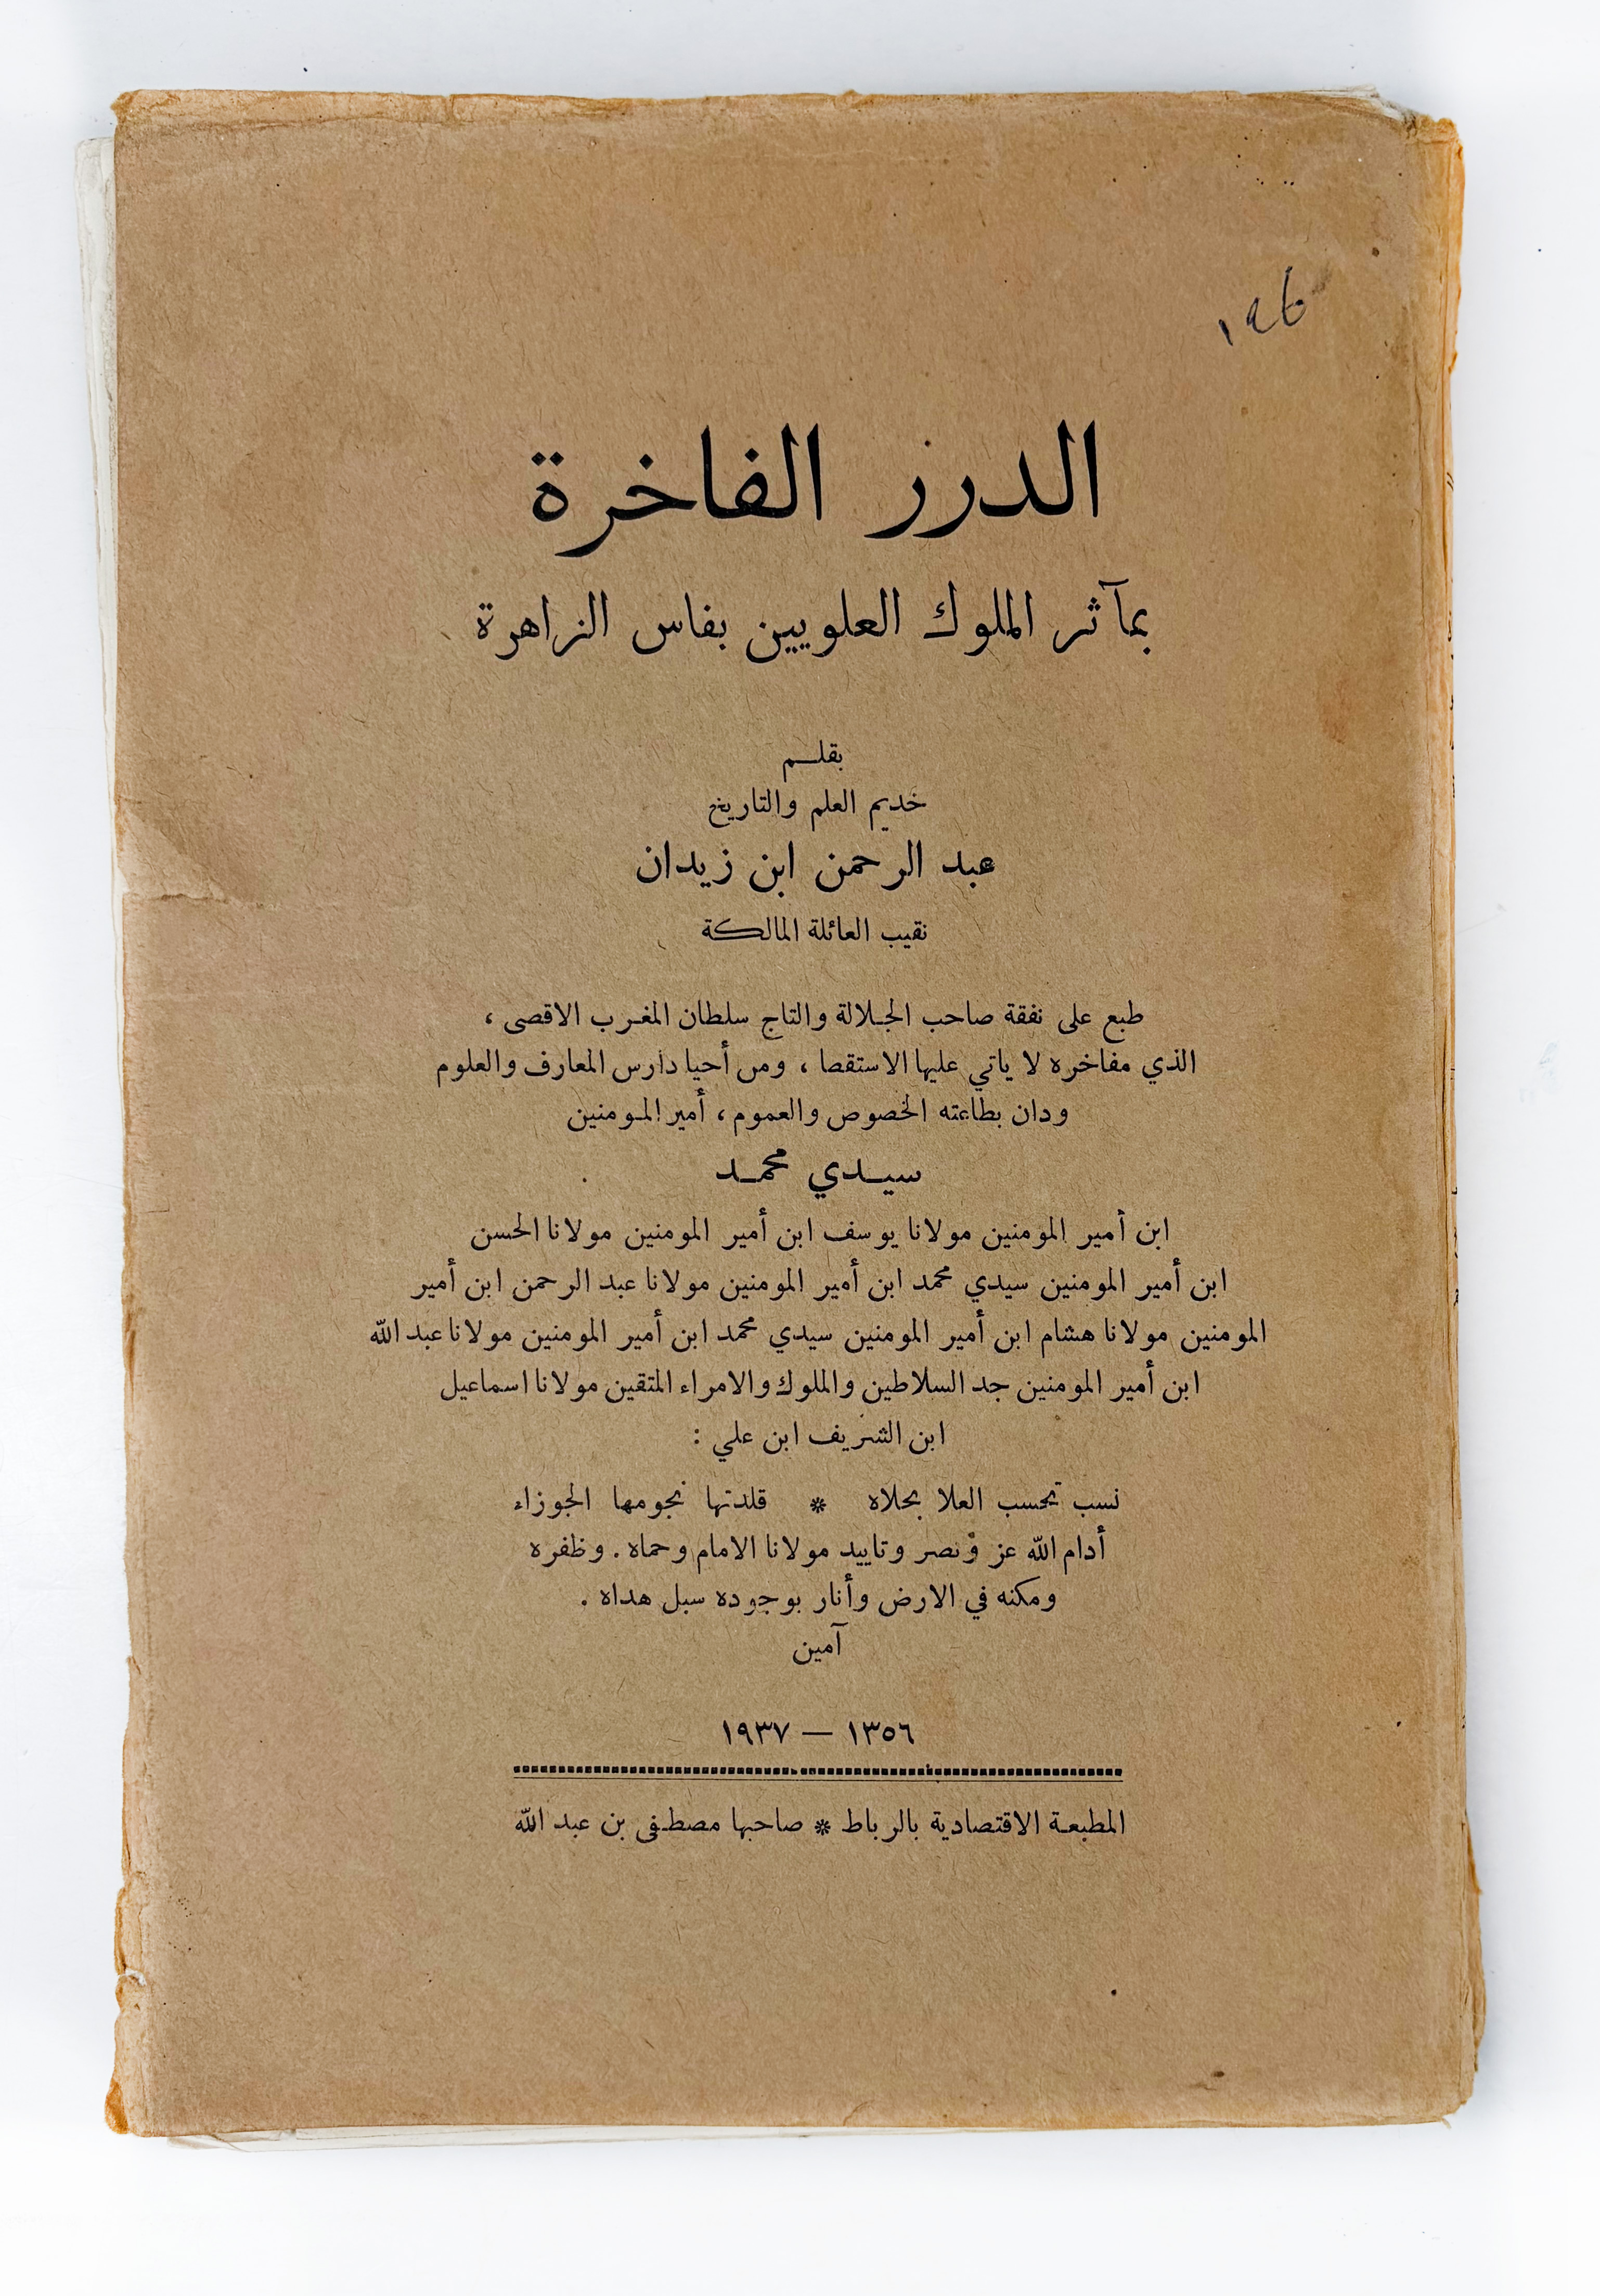 الدرر الفاخرة
بمآثر الملوك العلويين بفاس الزاهرة
بقلم
خديم العلم والتاريخ
عبد الرحمن ابن زيدان
نقيب العائلة المالكة
طبع على نفقة صاحب الجلالة والتاج سلطان المغرب الاقصى ،
الذي مفاخره لا ياتي عليها الاستقصا ، ومن أحيا دارس المعارف والعلوم
ودان بطاعته الخصوص والعموم ، أمير المومنين
سيدي محمد
ابن أمير المومنين مولانا يوسف ابن أمير المومنين مولانا الحسن
ابن أمير المومنين سيدي محمد ابن أمير المومنين مولانا عبد الرحمن ابن أمير
المومنين مولانا هشام ابن أمير المومنين سيدي محمد ابن أمير المومنين مولانا عبد الله
ابن أمير المومنين جد السلاطين والملوك والامراء المتقين مولانا اسماعيل
ابن الشريف ابن علي :
نسب تحسب العلا بحلاه * قلدتها نجومها الجوزاء
أدام الله عز ونصر وتاييد مولانا الامام وحماه . وظفره
ومكنه في الارض وأنار بوجوده سبل هداه .
آمين
١٣٥٦ — ١٩٣٧
المطبعة الاقتصادية بالرباط * صاحبها مصطفى بن عبد الله